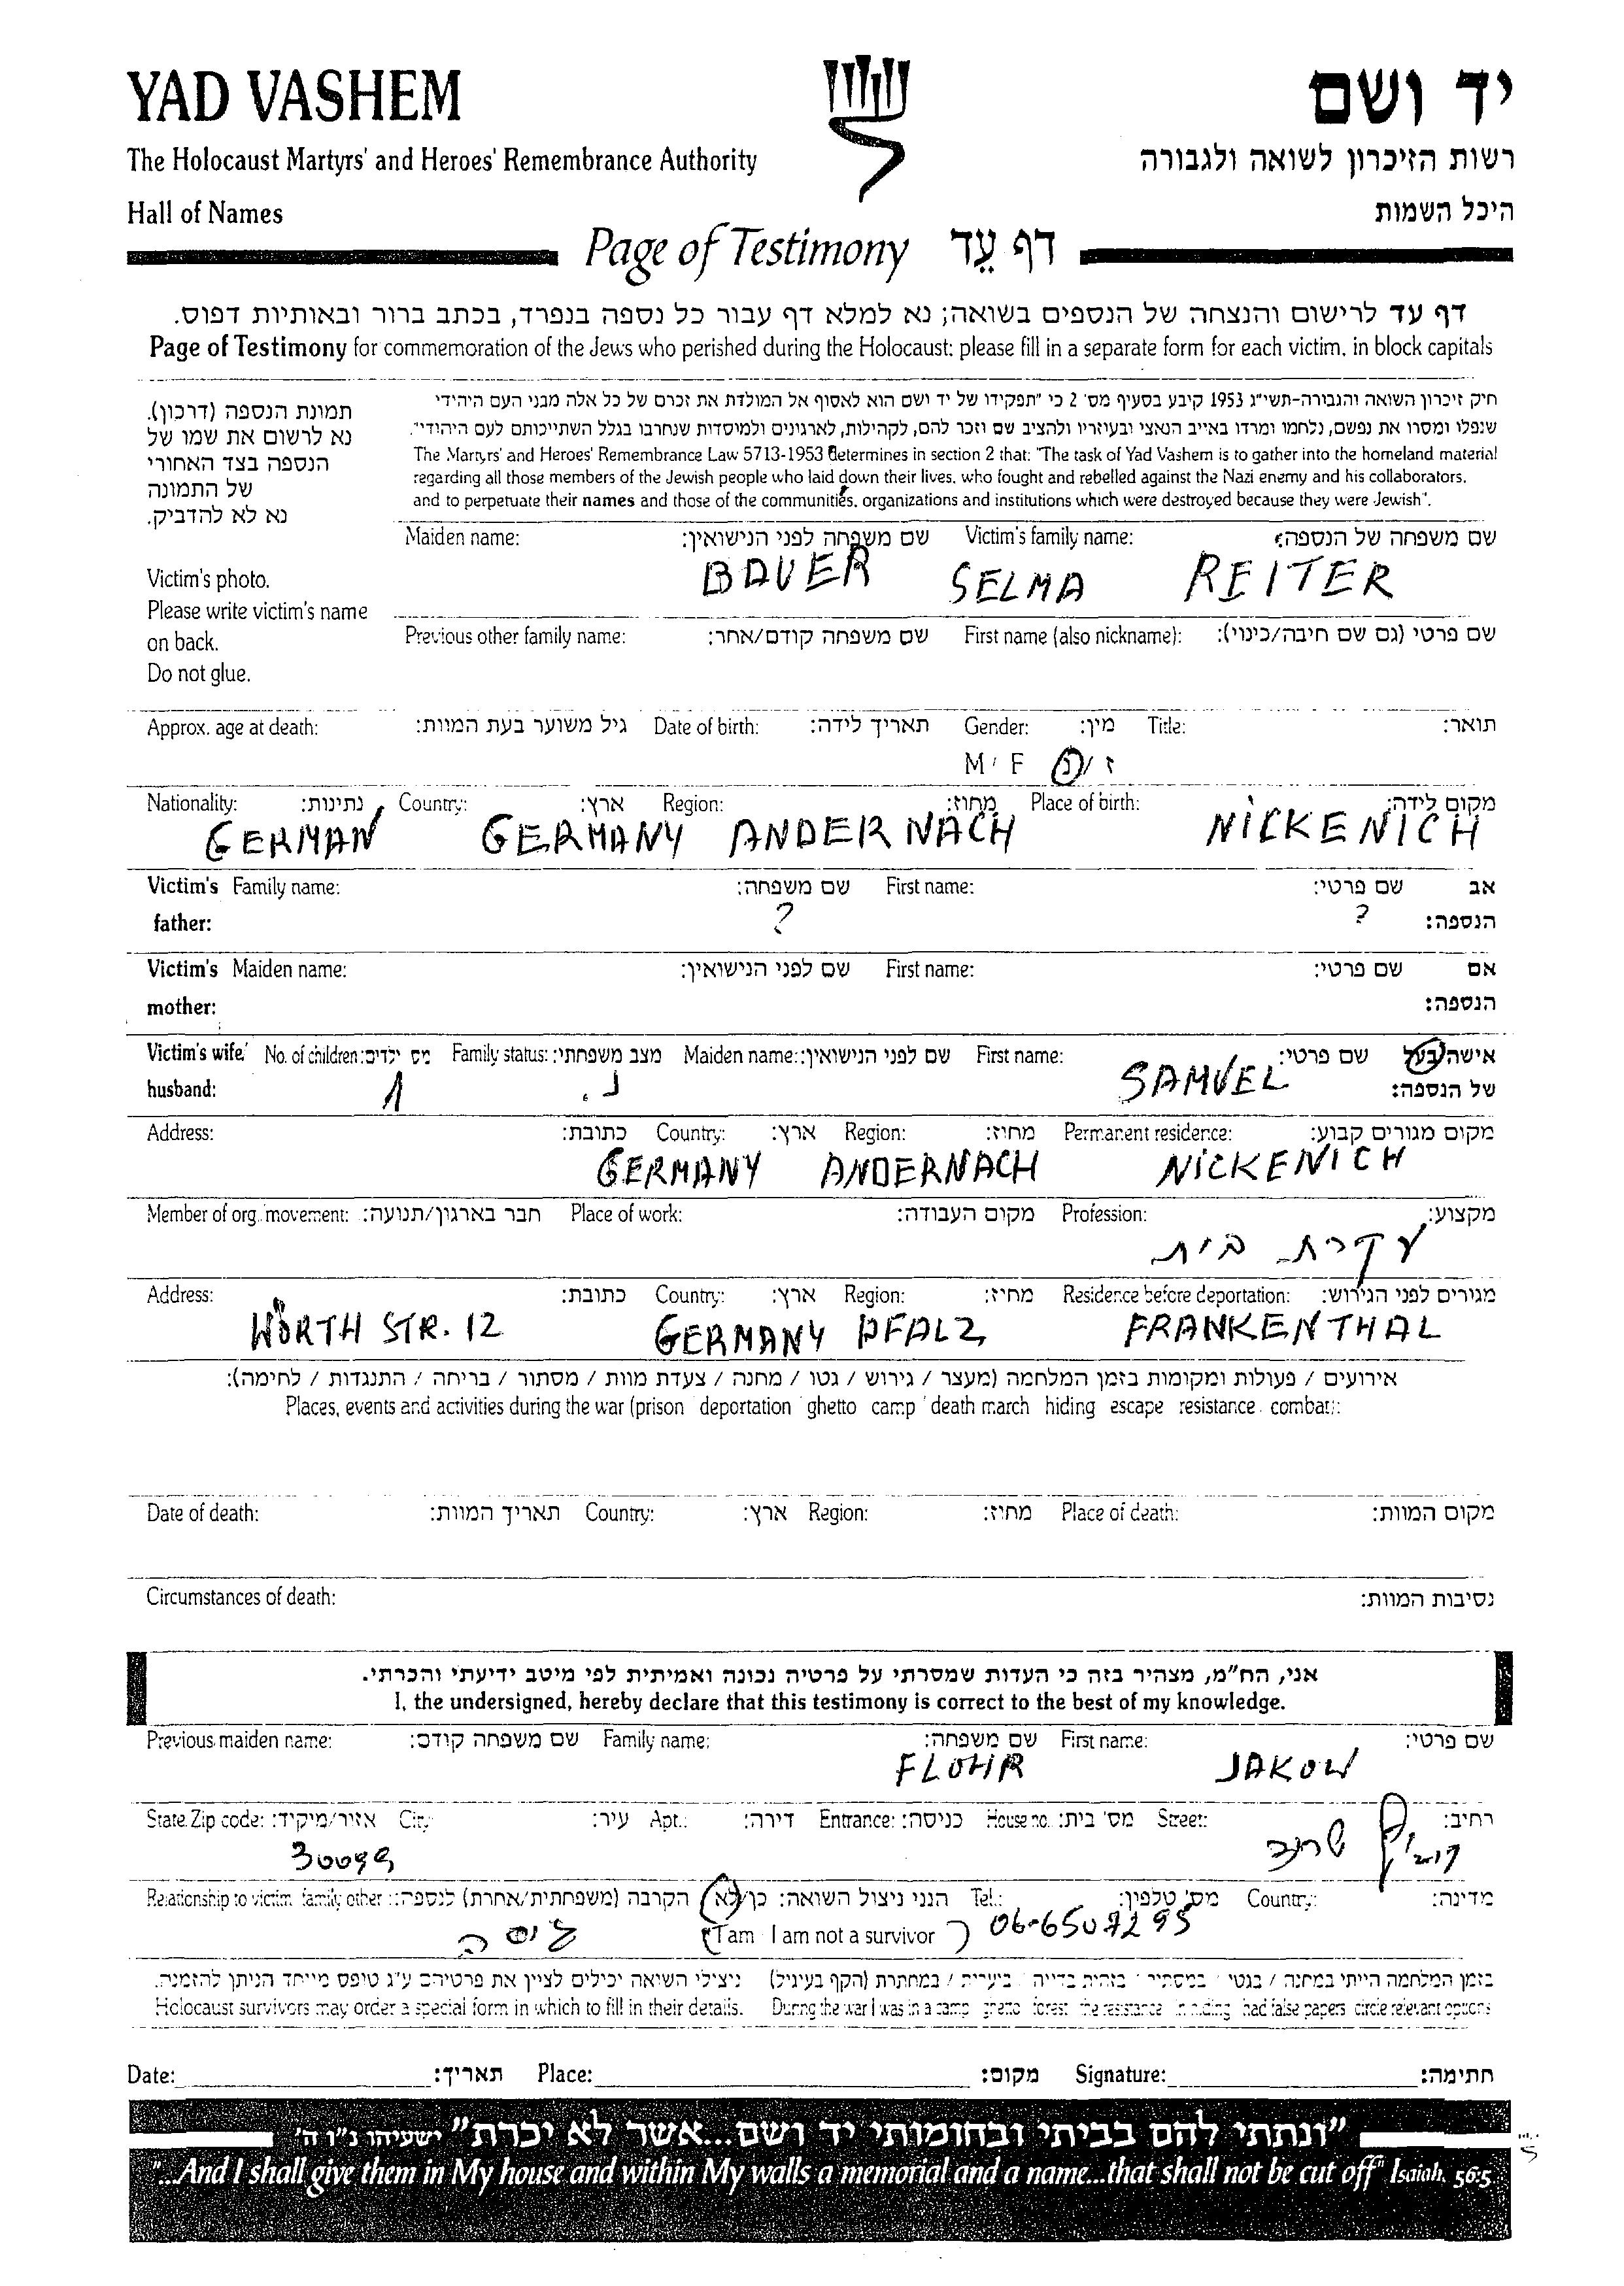 YAD VASHEM
יד ושם
The Holocaust Martyrs' and Heroes' Remembrance Authority
רשות הזיכרון לשואה ולגבורה
Hall of Names
היכל השמות
Page of Testimony דף עֵד
דף עד לרישום והנצחה של הנספים בשואה; נא למלא דף עבור כל נספה בנפרד, בכתב ברור ובאותיות דפוס.
Page of Testimony for commemoration of the Jews who perished during the Holocaust: please fill in a separate form for each victim, in block capitals
תמונת הנספה (דרכון).
נא לרשום את שמו של
הנספה בצד האחורי
של התמונה
נא לא להדביק.
Victim's photo.
Please write victim's name
on back.
Do not glue.
חיק זיכרון השואה והגבורה-תשי"ג 1953 קיבע בסעיף מס' 2 כי "תפקידו של יד ושם הוא לאסוף אל המולדת את זכרם של כל אלה מבני העם היהודי
שנפלו ומסרו את נפשם, נלחמו ומרדו באייב הנאצי ובעוזריו ולהציב שם וזכר להם, לקהילות, לארגינים ולמוסדות שנחרבו בגלל השתייכותם לעם היהודי".
The Martyrs' and Heroes' Remembrance Law 5713-1953 determines in section 2 that: "The task of Yad Vashem is to gather into the homeland material
regarding all those members of the Jewish people who laid down their lives, who fought and rebelled against the Nazi enemy and his collaborators,
and to perpetuate their names and those of the communities, organizations and institutions which were destroyed because they were Jewish".
Maiden name: שם משפחה לפני הנישואין: Victim's family name: שם משפחה של הנספה:
BAUER SELMA REITER
Previous other family name: שם משפחה קודם/אחר: First name (also nickname): שם פרטי (גם שם חיבה/כינוי):
Approx. age at death: גיל משוער בעת המוות: Date of birth: תאריך לידה: Gender: מין: Title: תואר:
M / F ז / נ
Nationality: נתינות: Country: ארץ: Region: מחוז: Place of birth: מקום לידה:
GERMAN GERMANY ANDERNACH NICKENICH
Victim's Family name: שם משפחה: First name: שם פרטי: אב
father: ? ? הנספה:
Victim's Maiden name: שם לפני הנישואין: First name: שם פרטי: אם
mother: הנספה:
Victim's wife/ No. of children: מס ילדים: Family status: מצב משפחתי: Maiden name: שם לפני הנישואין: First name: שם פרטי: אישה/בעל
husband: 1 נ. SAMUEL של הנספה:
Address: כתובת: Country: ארץ: Region: מחוז: Permanent residence: מקום מגורים קבוע:
GERMANY ANDERNACH NICKENICH
Member of org./movement: חבר בארגון/תנועה: Place of work: מקום העבודה: Profession: מקצוע:
עקרת בית
Address: כתובת: Country: ארץ: Region: מחוז: Residence before deportation: מגורים לפני הגירוש:
WÖRTH STR. 12 GERMANY PFALZ FRANKENTHAL
אירועים / פעולות ומקומות בזמן המלחמה (מעצר / גירוש / גטו / מחנה / צעדת מוות / מסתור / בריחה / התנגדות / לחימה):
Places, events and activities during the war (prison deportation ghetto camp death march hiding escape resistance combat):
Date of death: תאריך המוות: Country: ארץ: Region: מחוז: Place of death: מקום המוות:
Circumstances of death: נסיבות המוות:
אני, הח"מ, מצהיר בזה כי העדות שמסרתי על פרטיה נכונה ואמיתית לפי מיטב ידיעתי והכרתי.
I, the undersigned, hereby declare that this testimony is correct to the best of my knowledge.
Previous maiden name: שם משפחה קודם: Family name: שם משפחה: First name: שם פרטי:
FLOHR JAKOW
State/Zip code: אזיר/מיקיד: City: עיר: Apt.: דירה: Entrance: כניסה: House no. מס' בית: Street: רחיב:
30099
Relationship to victim family other: הקרבה (משפחתית/אחרת) לנספה: הנני ניצול השואה: כן/לא Tel.: מס' טלפון: Country: מדינה:
גיסה I am I am not a survivor 06-6507295
בזמן המלחמה הייתי במחנה / בגטו / במסתיר / בזהית בדייה / ביערית / במחתרת (הקף בעיגיל) ניצילי השיאה יכילים לציין את פרטיהם ע"ג טופס מייחד הניתן להזמנה.
Holocaust survivors may order a special form in which to fill in their details. During the war I was in a camp ghetto forest the resistance in hiding had false papers circle relevant options
Date: תאריך: Place: מקום: Signature: חתימה:
"ונתתי להם בביתי ובחומותי יד ושם...אשר לא יכרת" ישעיהו נ"ו ה'
"...And I shall give them in My house and within My walls a memorial and a name...that shall not be cut off" Isaiah, 56:5